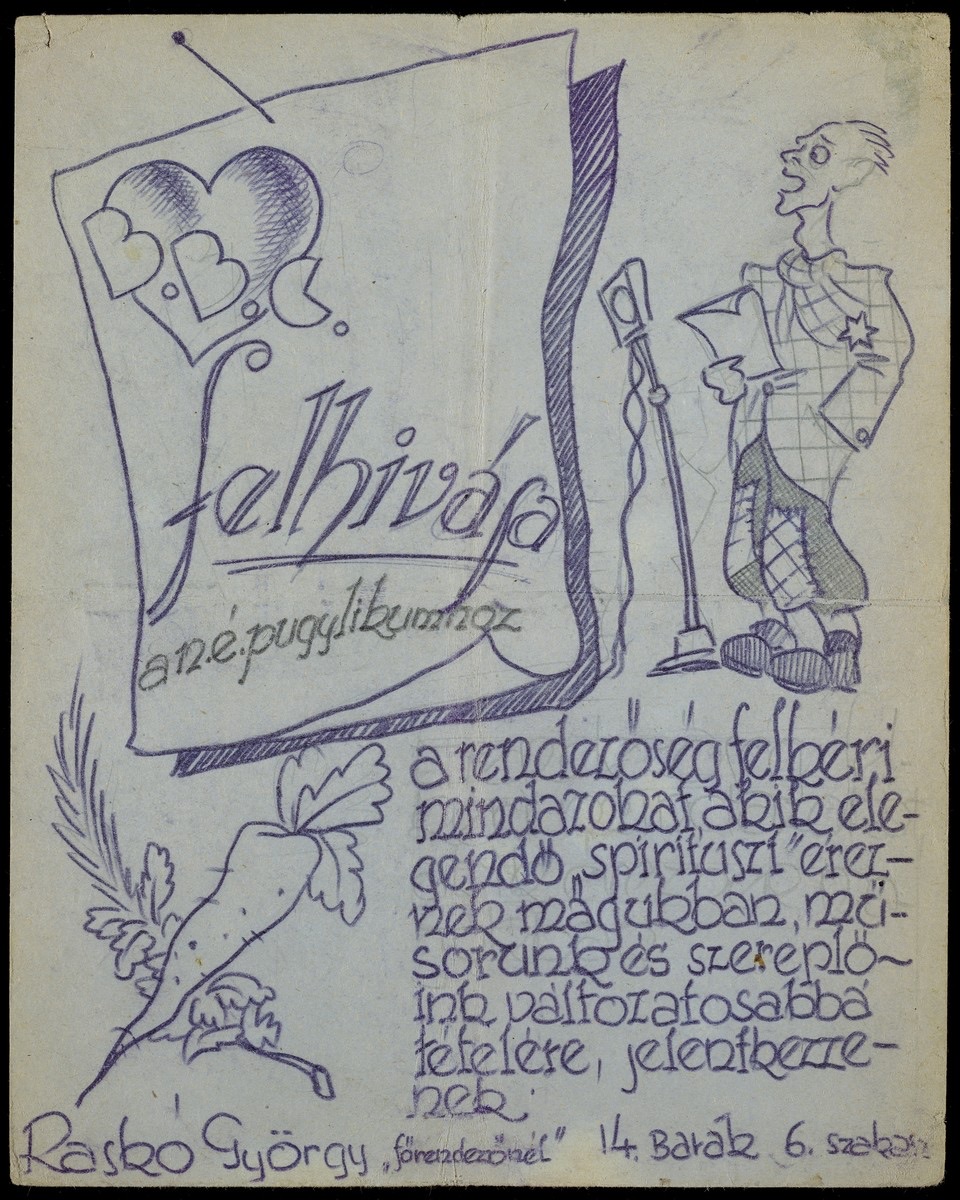 B.B.C.
felhivása
a n.é. pugylibumhoz
a rendezőség felkéri
mindazokat akik ele-
gendő „spirituszt" érez-
nek magukban, mű-
sorunk és szereplő-
ink változatosabbá
tételére, jelentkezze-
nek.
Raskó György „főrendezőnél" 14. Barák 6. szakasz